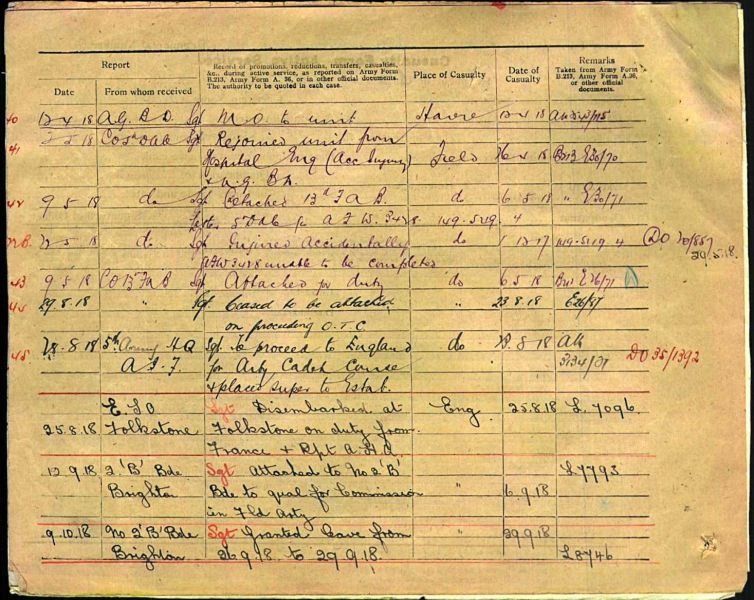 Report
Record of promotions, reductions, transfers, casualties, &c., during active service, as reported on Army Form B.213, Army Form A. 36, or in other official documents. The authority to be quoted in each case.
Place of Casualty
Date of Casualty
Remarks
Taken from Army Form B.213, Army Form A.36, or other official documents.
Date
From whom received
40 12 4 18 A.G. B.D. Sgt M.O. to unit Havre 12 4 18
41 2 5 18 Sgt Rejoined unit from
Hospital Eng (Acc Injury) Field 26 4 18 B213 E30/70
42 9 5 18 do Sgt Detached 13th F A B. do 6 5 18 " E30/71
A F W. 3428 149.5149. 4
42B. 2 5 18 do Sgt Injured Accidentally do 1 12 17 149.5149 4 DO 20/857
AFW 3428 unable to be completed 20.5.18.
43 9 5 18 CO 13th FAB Sgt Attached for duty do 6 5 18 B213 E26/71
44 29.8.18 " Sgt ceased to be attached " 23.8.18
on proceeding O.T.C
45 28.8.18 5th Army H Q Sgt to proceed to England do 8 18
A I F for Arty Cadet Course 3134/ DO 35/1392
& placed super to Estab.
E.S.O Sgt Disembarked at Eng 25.8.18 L.7096
25.8.18 Folkstone Folkstone on duty from
France & Rpt A.H.Q.
12.9.18 2 'B' Bde Sgt Attached to No 2 'B' L7793
Brighton Bde to qual for Commission " 6.9.18
in Fld Arty
9.10.18 No 2'B' Bde Sgt Granted leave from 29.9.18
Brighton 26.9.18 to 29.9.18. " L8746